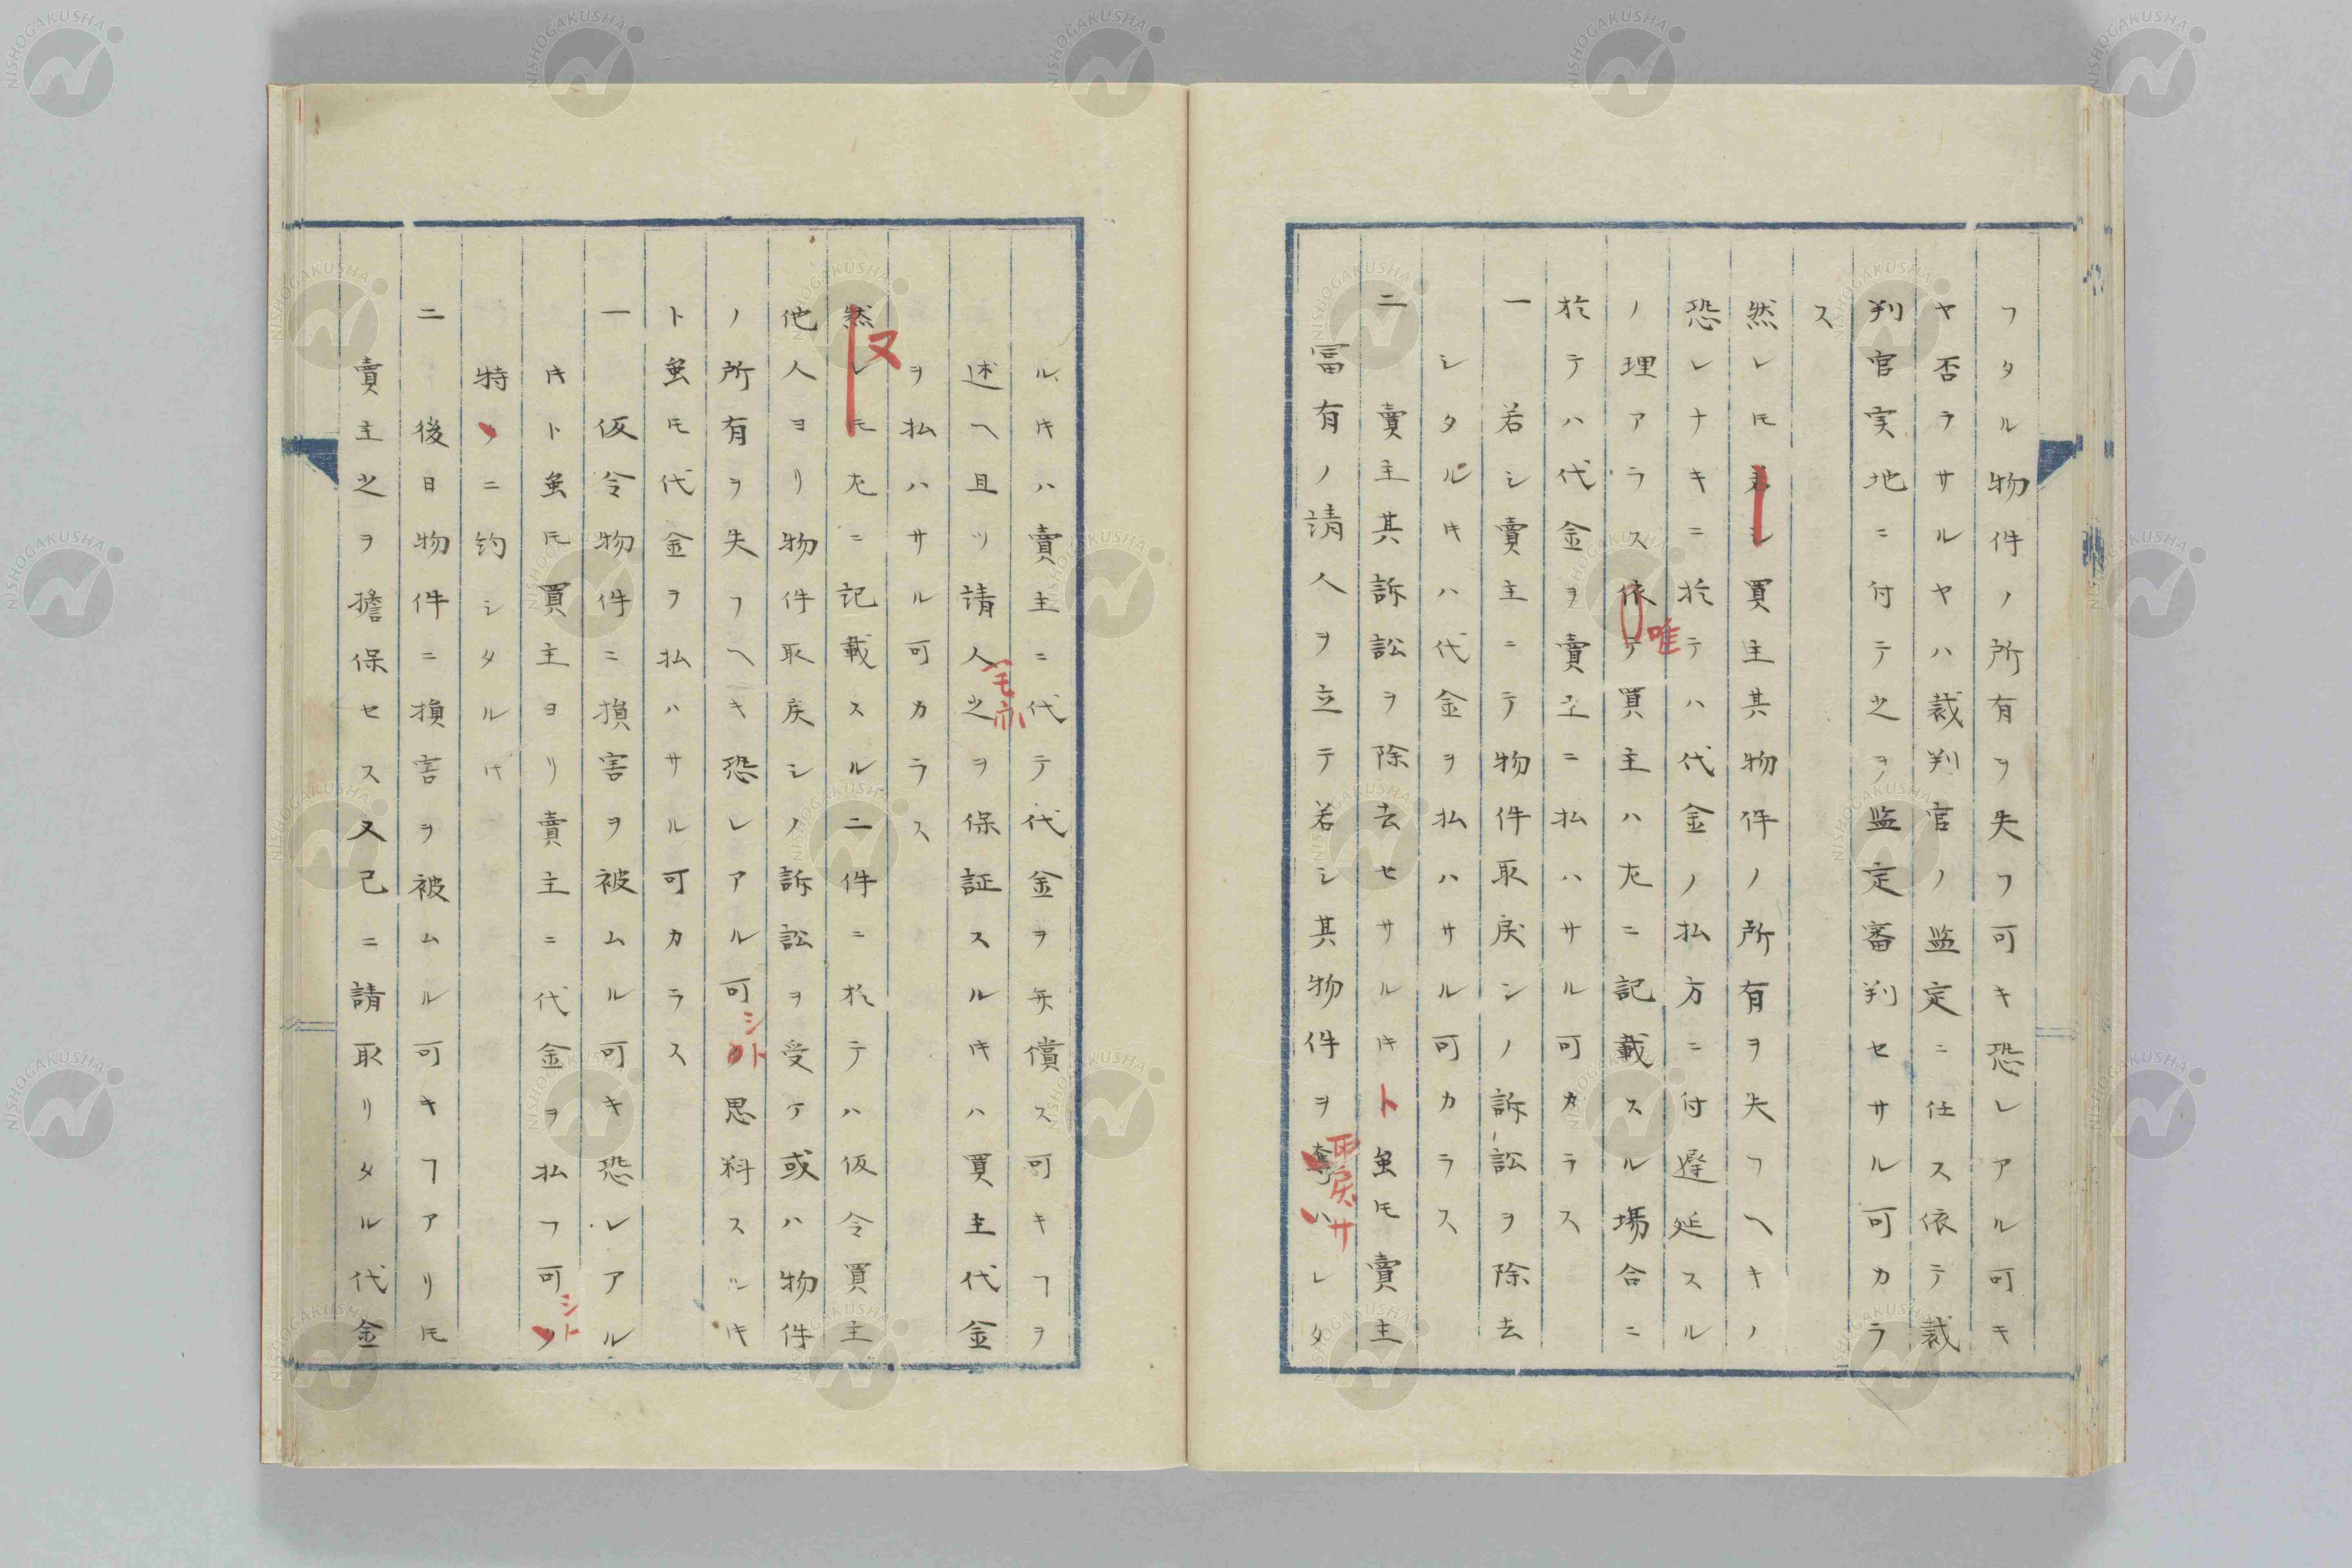 フタル物件ノ所有ヲ失フ可キ恐レアル可キ
ヤ否ラサルヤハ裁判官ノ監定ニ任ス依テ裁
判官実地ニ付テ之ヲ監定審判セサル可カラ
ス
然レ𪜈若シ買主其物件ノ所有ヲ失フヘキノ
恐レナキニ於テハ代金ノ払方ニ付遅延スル
ノ理アラス依テ買主ハ左ニ記載スル場合ニ
唯
於テハ代金ヲ賣主ニ払ハサル可カラス
一 若シ賣主ニテ物件取戻シノ訴訟ヲ除去
シタル𪜀ハ代金ヲ払ハサル可カラス
二 賣主其訴訟ヲ除去セサル𪜀ト虽𪜈賣主
冨有ノ請人ヲ立テ若シ其物件ヲ奪ハレタ
取戻サ
ル𪜀ハ賣主ニ代テ代金ヲ弁償ス可キヿヲ
述ヘ且ツ請人之ヲ保証スル𪜀ハ買主代金
モ亦
ヲ払ハサル可カラス
然レ𪜈左ニ記載スル二件ニ於テハ仮令買主
又
他人ヨリ物件取戻シノ訴訟ヲ受ケ或ハ物件
ノ所有ヲ失フヘキ恐レアル可思料スル𪜀
シト
ト虽𪜈代金ヲ払ハサル可カラス
一 仮令物件ニ損害ヲ被ムル可キ恐レアル
𪜀ト虽𪜈買主ヨリ賣主ニ代金ヲ払フ可
シト
特ニ約シタル𪜀
二 後日物件ニ損害ヲ被ムル可キヿアリ𪜈
賣主之ヲ擔保セス又已ニ請取リタル代金
NISHOGAKUSHA